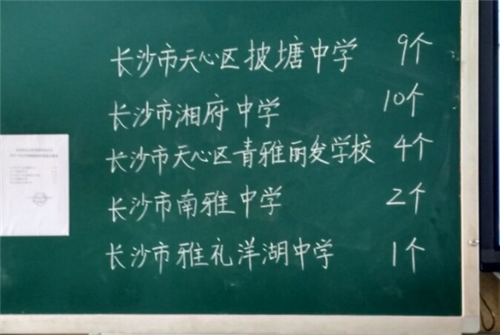 长沙市天心区披塘中学 9个
长沙市湘府中学 10个
长沙市天心区青雅丽发学校 4个
长沙市南雅中学 2个
长沙市雅礼洋湖中学 1个